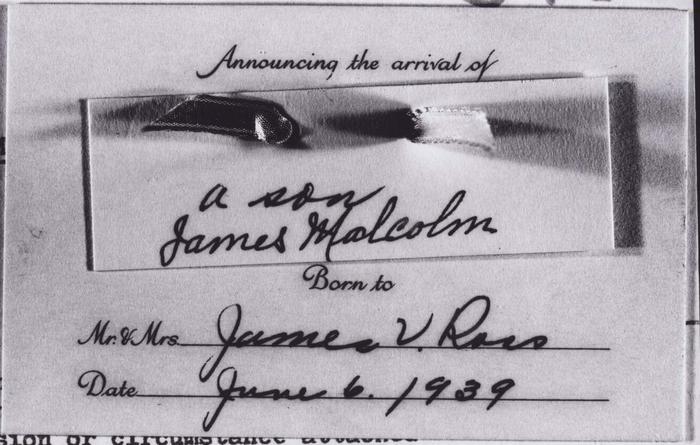 Announcing the arrival of
a son
James Malcolm
Born to
Mr. & Mrs. James V. Ross
Date June 6. 1939
sion or circumstance attached